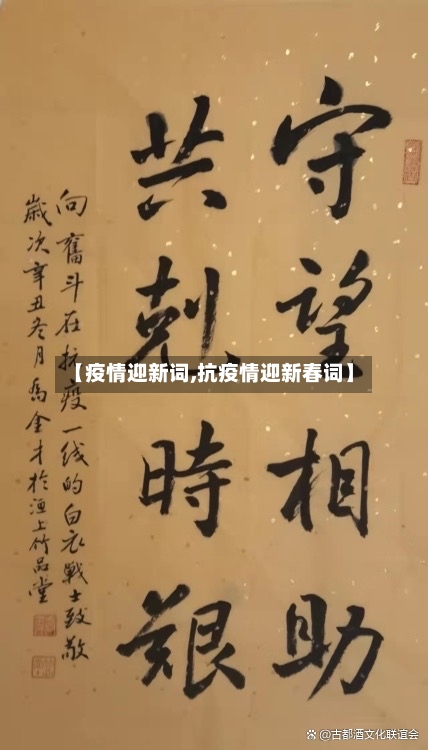 守望相助
共剋時艱
向奮斗在抗疫一线的白衣戰士致敬
歲次辛丑冬月金才於洹上竹品堂
【疫情迎新词,抗疫情迎新春词】
@古都酒文化联谊会